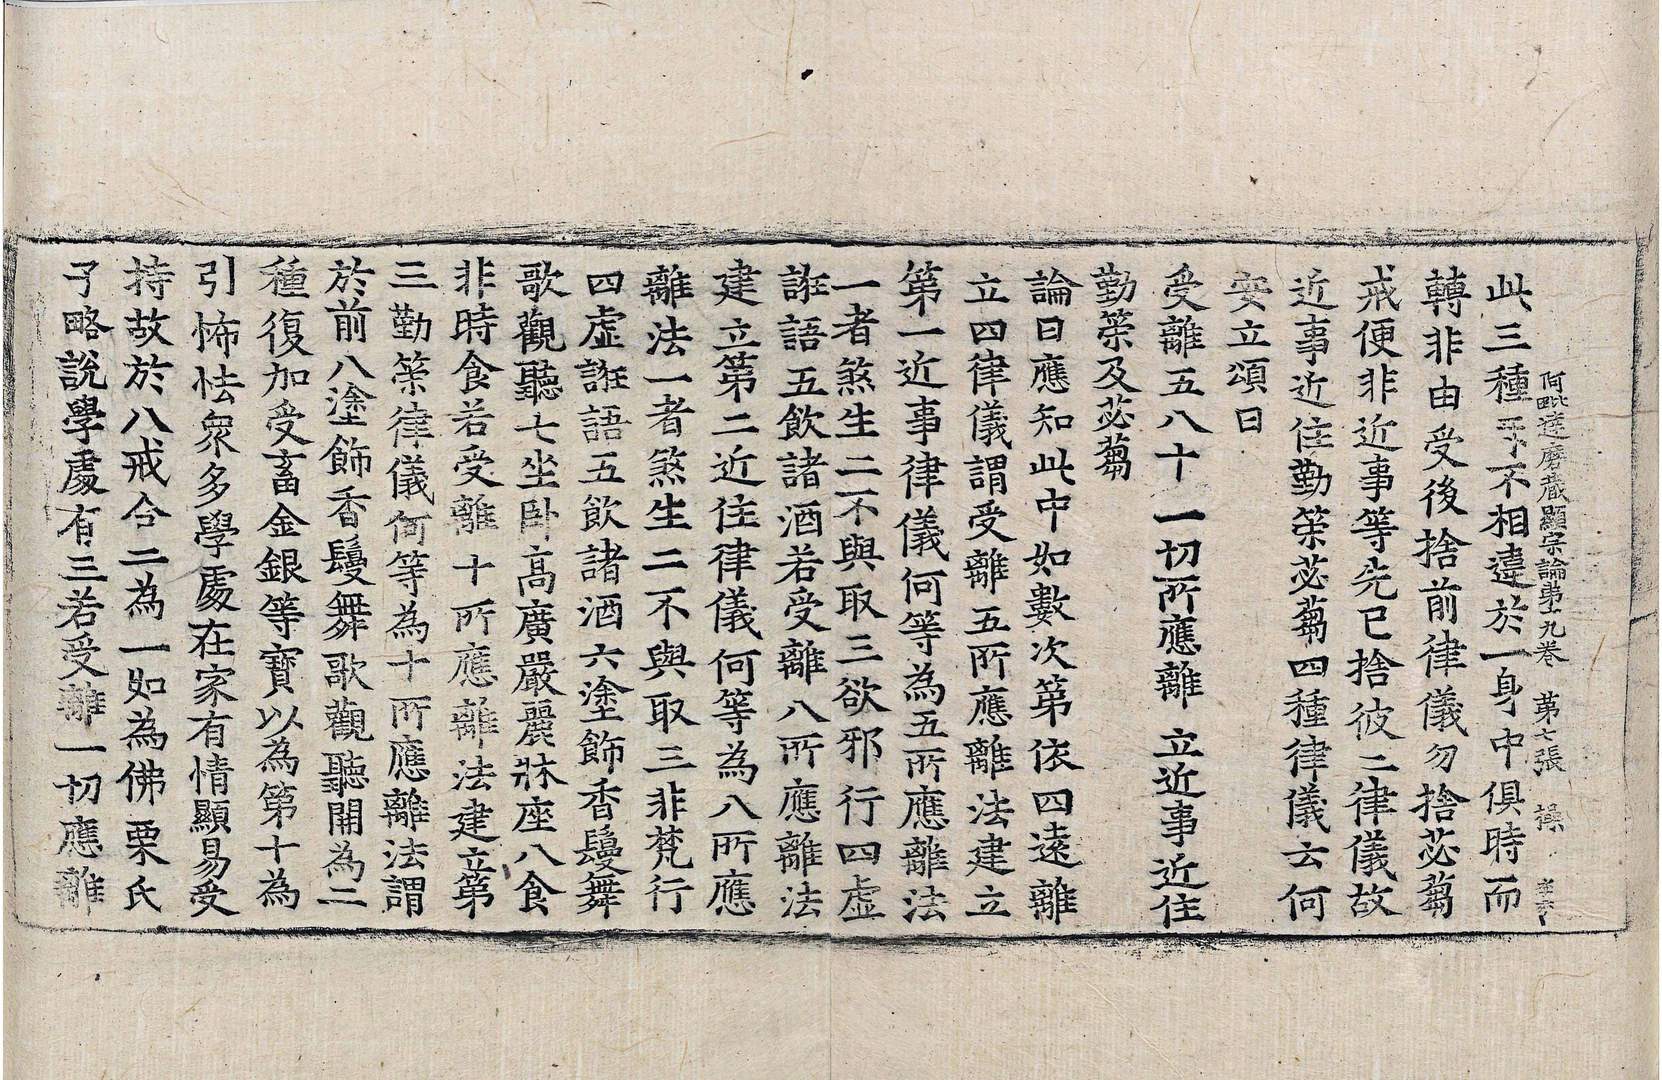 阿毗達磨藏顯宗論弟十九卷　第七張　操
此三種互不相違於一身中俱時而
轉非由受後捨前律儀勿捨苾蒭
戒便非近事等先已捨彼二律儀故
近事近住勤策苾蒭四種律儀云何
安立頌曰
受離五八十　一切所應離　立近事近住
勤策及苾蒭
論曰應知此中如數次第依四遠離
立四律儀謂受離五所應離法建立
第一近事律儀何等為五所應離法
一者煞生二不與取三欲邪行四虛
誑語五飲諸酒若受離八所應離法
建立第二近住律儀何等為八所應
離法一者煞生二不與取三非梵行
四虛誑語五飲諸酒六塗飾香鬘舞
歌觀聽七坐卧高廣嚴麗牀座八食
非時食若受離十所應離法建立第
三勤策律儀何等為十所應離法謂
於前八塗飾香鬘舞歌觀聽開為二
種復加受畜金銀等寶以為第十為
引怖怯衆多學處在家有情顯易受
持故於八戒合二為一如為佛栗氏
子略說學處有三若受離一切應離